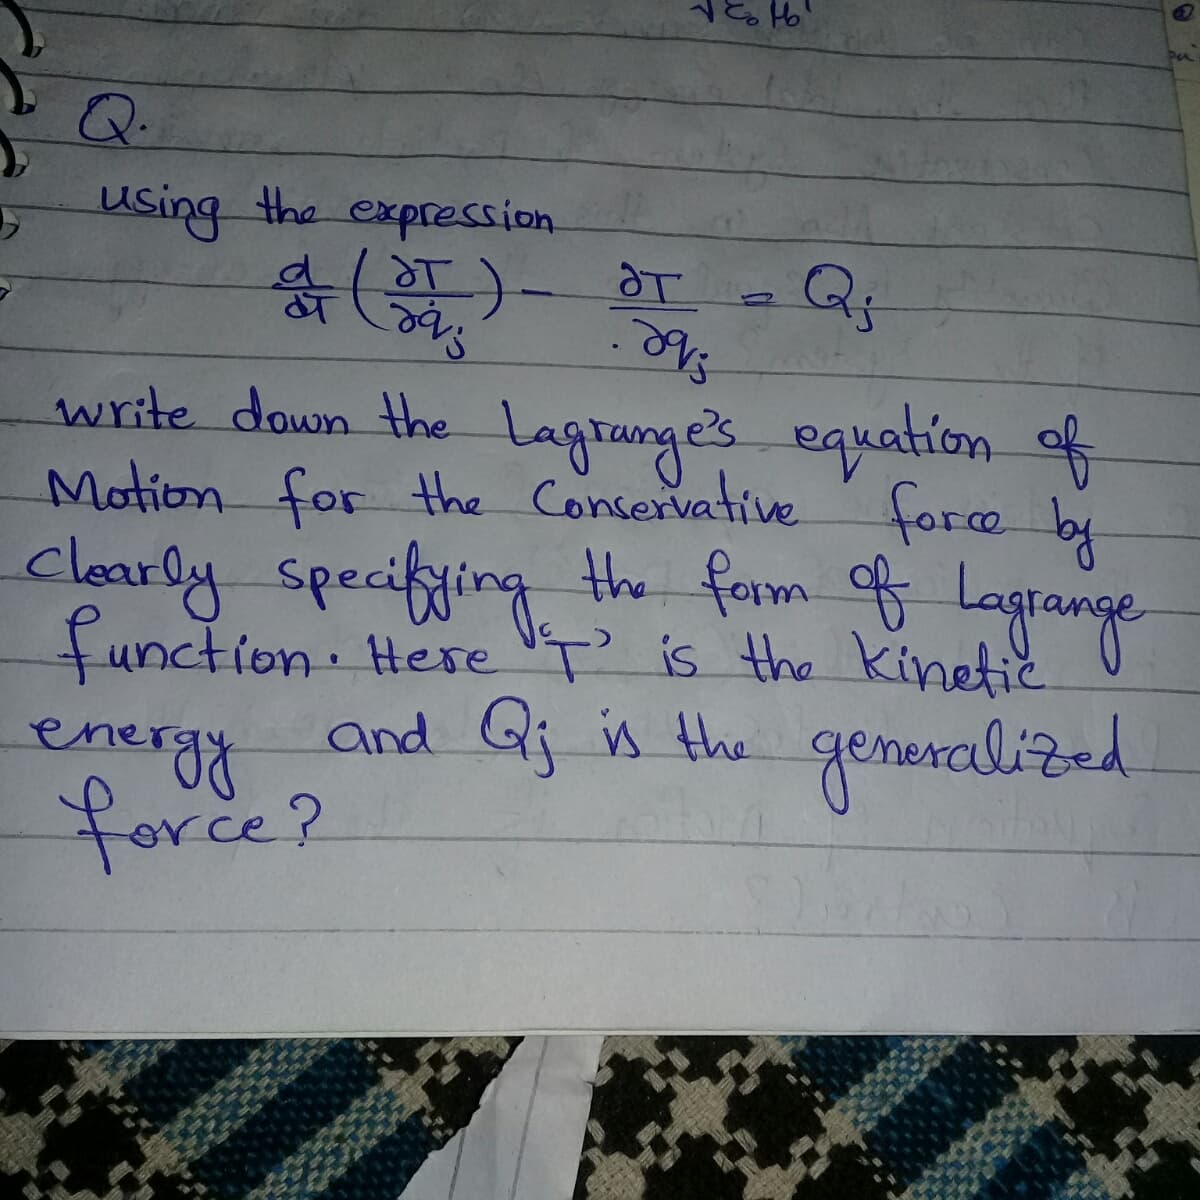 √ε₀ μ₀
Q.
using the expression
d/dT (∂T/∂q̇j) - ∂T/∂qj = Qj
write down the Lagrange's equation of
Motion for the Conservative force by
Clearly specifying the form of Lagrange
function. Here 'T' is the kinetic
energy and Qj is the generalized
force?